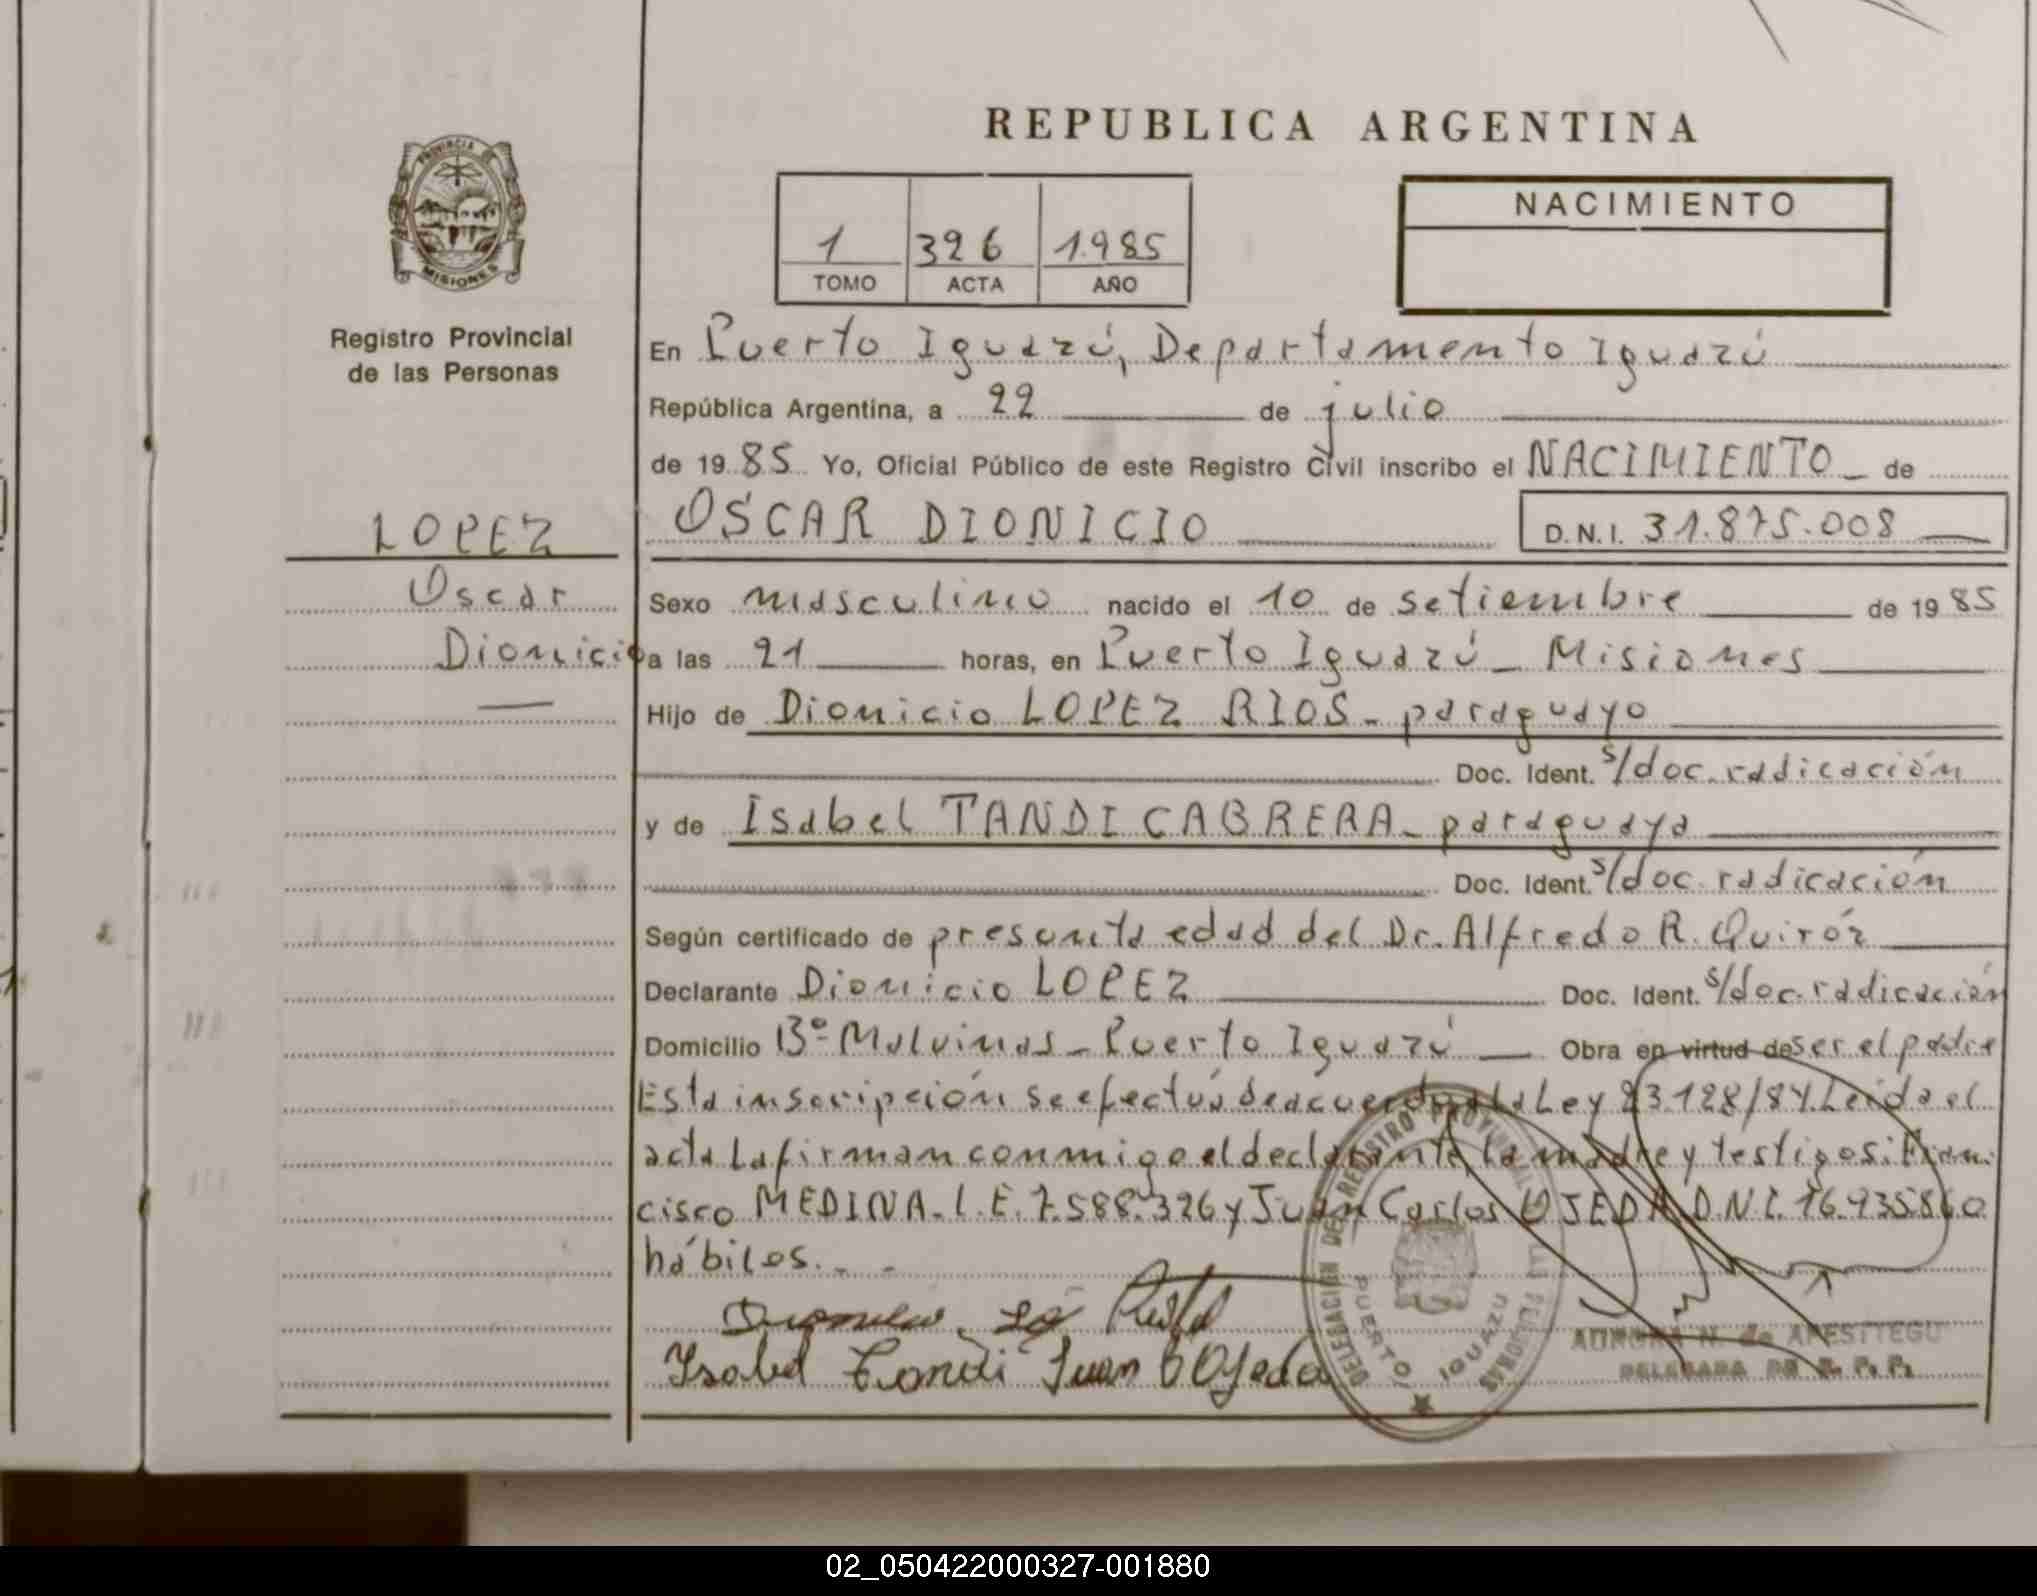 REPUBLICA ARGENTINA
PROVINCIA DE
MISIONES
Registro Provincial
de las Personas
1 326 1.985
TOMO ACTA AÑO
NACIMIENTO
En Puerto Iguazú, Departamento Iguazú
República Argentina, a 22 de julio
de 19 85 Yo, Oficial Público de este Registro Civil inscribo el NACIMIENTO de
LOPEZ
OSCAR DIONICIO D.N.I. 31.875.008
Oscar
Sexo masculino nacido el 10 de setiembre de 19 85
Dionicio
a las 21 horas, en Puerto Iguazú - Misiones
Hijo de Dionicio LOPEZ RIOS - paraguayo
Doc. Ident. s/doc. radicación
y de Isabel TANDI CABRERA - paraguaya
Doc. Ident. s/doc. radicación
Según certificado de presunta edad del Dr. Alfredo R. Quiróz
Declarante Dionicio LOPEZ Doc. Ident. s/doc. radicación
Domicilio Bº Malvinas - Puerto Iguazú Obra en virtud de ser el padre
Esta inscripción se efectúa de acuerdo a la Ley 23.128/84. Leída el
acta la firman conmigo el declarante la madre y testigos: Fran-
cisco MEDINA - L.E. 7.588.326 y Juan Carlos OJEDA D.N.I. 16.935860
hábiles. - -
Isabel Tandi Juan C Ojeda
DELEGACION DEL REGISTRO PROVINCIAL DE LAS PERSONAS
PUERTO IGUAZU
AURORA N. de APESTTEGU
DELEGADA DE R. P. P.
02_050422000327-001880